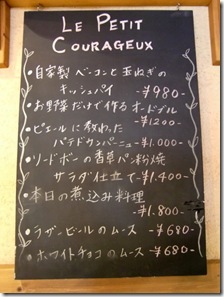 LE PETIT
COURAGEUX
・自家製ベーコンと玉ねぎの
キッシュパイ -¥980-
・お野菜だけで作るオードブル
-¥1200-
・ピエールに教わった
パテドカンパーニュ -¥1.000-
・リードボーの香草パン粉焼
サラダ仕立て -¥1.400-
・本日の煮込み料理
-¥1.800-
・ラガービールのムース -¥680-
・ホワイトチョコのムース -¥680-